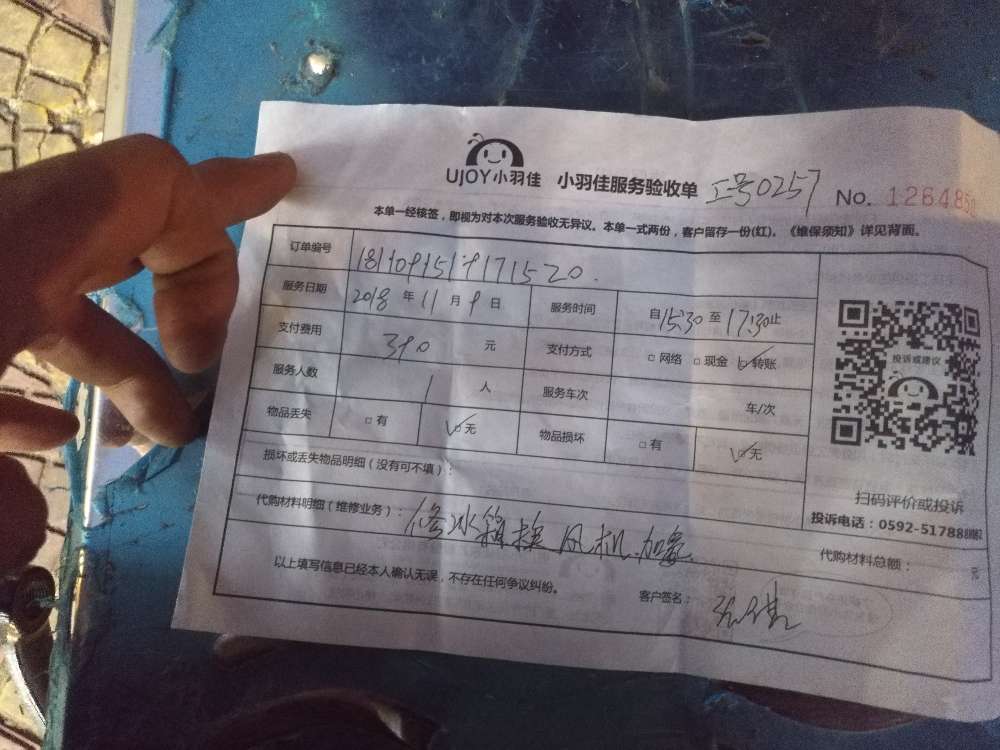 UJOY小羽佳 小羽佳服务验收单 工号0257 No. 126485
本单一经核签，即视为对本次服务验收无异议。本单一式两份，客户留存一份(红)。《维保须知》详见背面。
订单编号
服务日期 2018 年 11 月 9 日 服务时间 自 15:30 至 17:30 止
支付费用 390 元 支付方式 □ 网络 □ 现金 ☑ 转账
服务人数 1 人 服务车次 车/次
物品丢失 □ 有 ☑ 无 物品损坏 □ 有 ☑ 无
损坏或丢失物品明细（没有可不填）：
代购材料明细（维修业务）：修冰箱换风机.加氟
代购材料总额：
以上填写信息已经本人确认无误，不存在任何争议纠纷。 客户签名：
投诉或建议
扫码评价或投诉
投诉电话：0592-51788